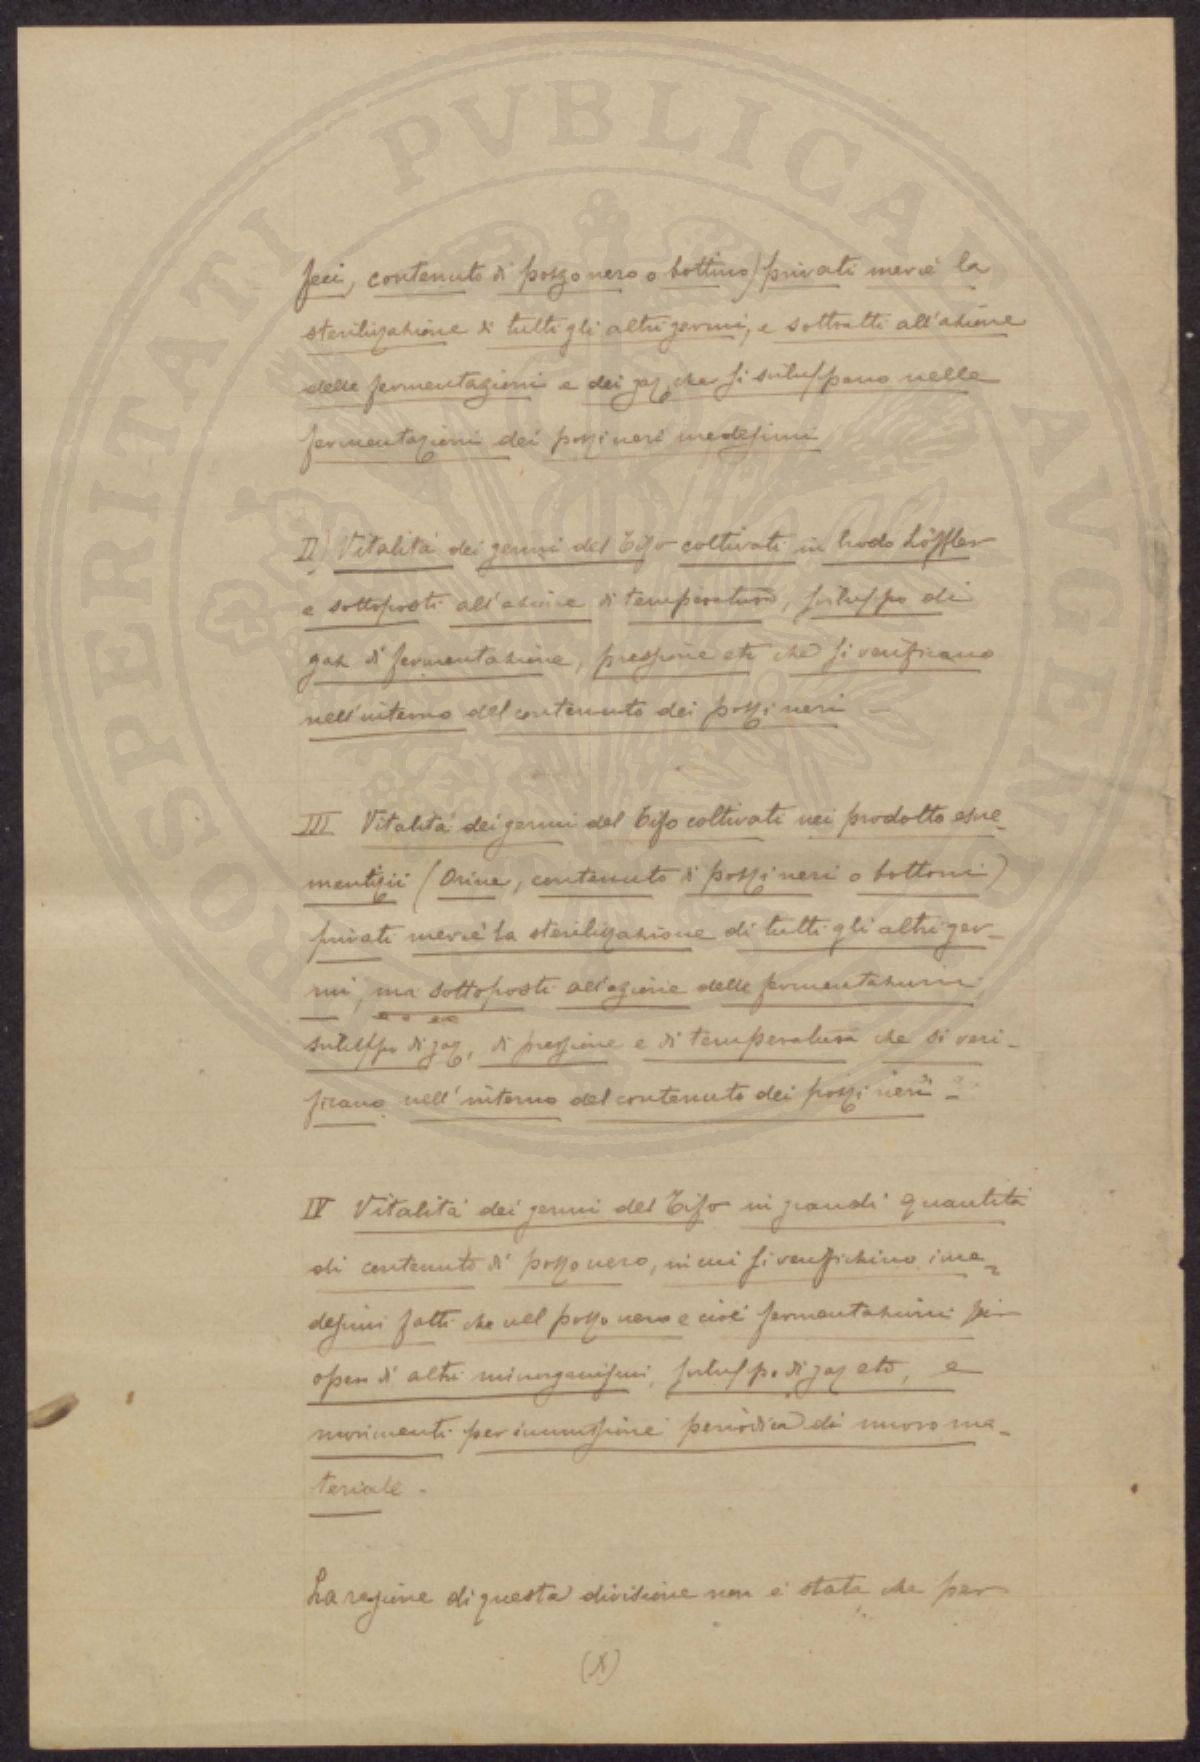 feci, contenuto di pozzo nero o bottino) privati mercè la
sterilizzazione di tutti gli altri germi, e sottratti all'azione
delle fermentazioni e dei gaz che si sviluppano nelle
fermentazioni dei pozzi neri medesimi
II) Vitalità dei germi del Tifo coltivati in brodo Löffler
e sottoposti all'azione di temperatura, sviluppo di
gaz di fermentazione, pressione etc che si verificano
nell'interno del contenuto dei pozzi neri —
III Vitalità dei germi del Tifo coltivati nei prodotto escre-
mentizii (Orine, contenuto di pozzi neri o bottoni)
privati mercè la sterilizzazione di tutti gli altri ger-
mi, ma sottoposti all'azione delle fermentazioni,
sviluppo di gaz, di pressione e di temperatura che si veri-
ficano nell'interno del contenuto dei pozzi neri -
IV Vitalità dei germi del Tifo in grandi quantità
di contenuto di pozzo nero, in cui si verifichino i me-
desimi fatti che nel pozzo nero e cioè fermentazioni per
opera di altri microrganismi, sviluppo di gaz etc, e
movimenti per immissione periodica di nuovo ma-
teriale -
La ragione di questa divisione non è stata che per
(X)
PROSPERITATI PVBLICAE AVGENDAE